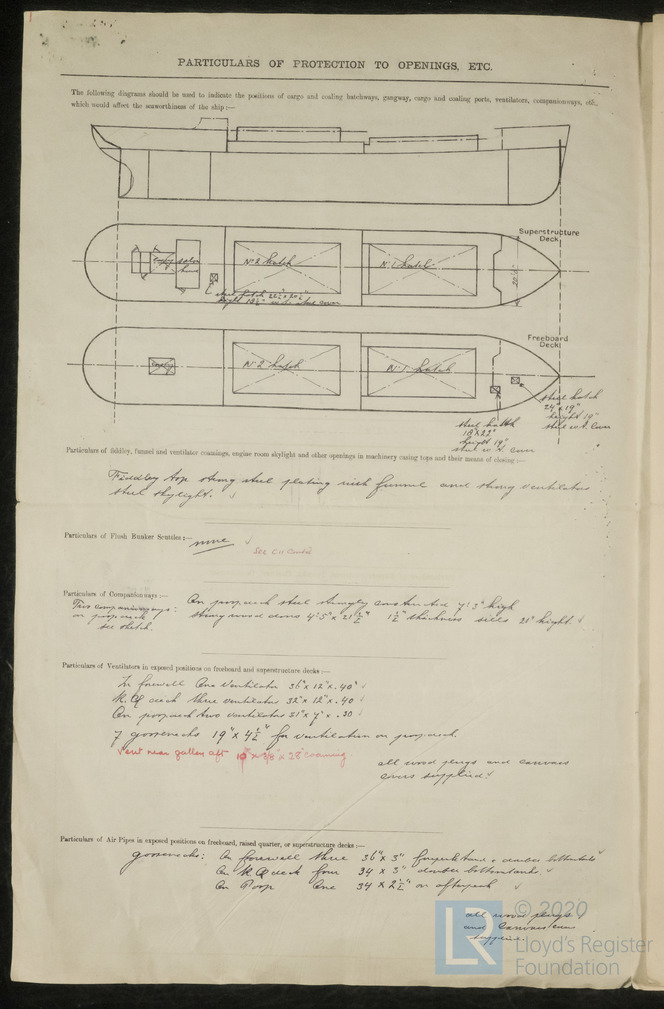 PARTICULARS OF PROTECTION TO OPENINGS, ETC.
The following diagrams should be used to indicate the positions of cargo and coaling hatchways, gangway, cargo and coaling ports, ventilators, companionways, etc.,
which would affect the seaworthiness of the ship:—
Superstructure
Deck
No 2 hatch
No 1 hatch
steel hatch
height
steel cover
Freeboard
Deck
No 2 hatch
No 1 hatch
steel hatch
24" x 19"
height 19"
steel w.t. cover
steel hatch
18" x 22"
height 19"
steel w.t. cover
Particulars of fiddley, funnel and ventilator coamings, engine room skylight and other openings in machinery casing tops and their means of closing:—
Fiddley top strong steel plating with funnel and strong ventilators
steel skylight.
Particulars of Flush Bunker Scuttles:—
none
See
Particulars of Companionways:—
Two companionways:
on poop deck
see sketch.
On poop deck steel strongly constructed 7'.3" high
strong wood doors 4'.5" x 21½" 1½" thickness sills 21" height.
Particulars of Ventilators in exposed positions on freeboard and superstructure decks:—
In forewell One ventilator 36" x 12" x .40"
R.Q deck three ventilators 32" x 12" x .40
On poop deck two ventilators 31" x 7" x .30
7 goosenecks 19" x 4½" for ventilation on poop deck.
Vent near galley aft 10" x 3/8" x 28" coaming
all wood plugs and canvas
covers supplied.
Particulars of Air Pipes in exposed positions on freeboard, raised quarter, or superstructure decks:—
goosenecks: On forewell three 36" x 3" forepeak tank + double bottom tanks
On R Q deck four 34 x 3" double bottom tanks.
On Poop One 34 x 2½" on afterpeak
all wood plugs
and canvas covers
supplied.
LR
© 2020
Lloyd's Register
Foundation